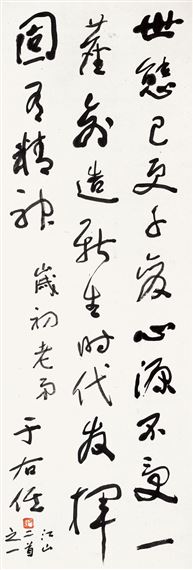 世態已更千變心源不受一
塵創造新生時代發揮
固有精神 歲初老弟
于右任
江山
二首
之一